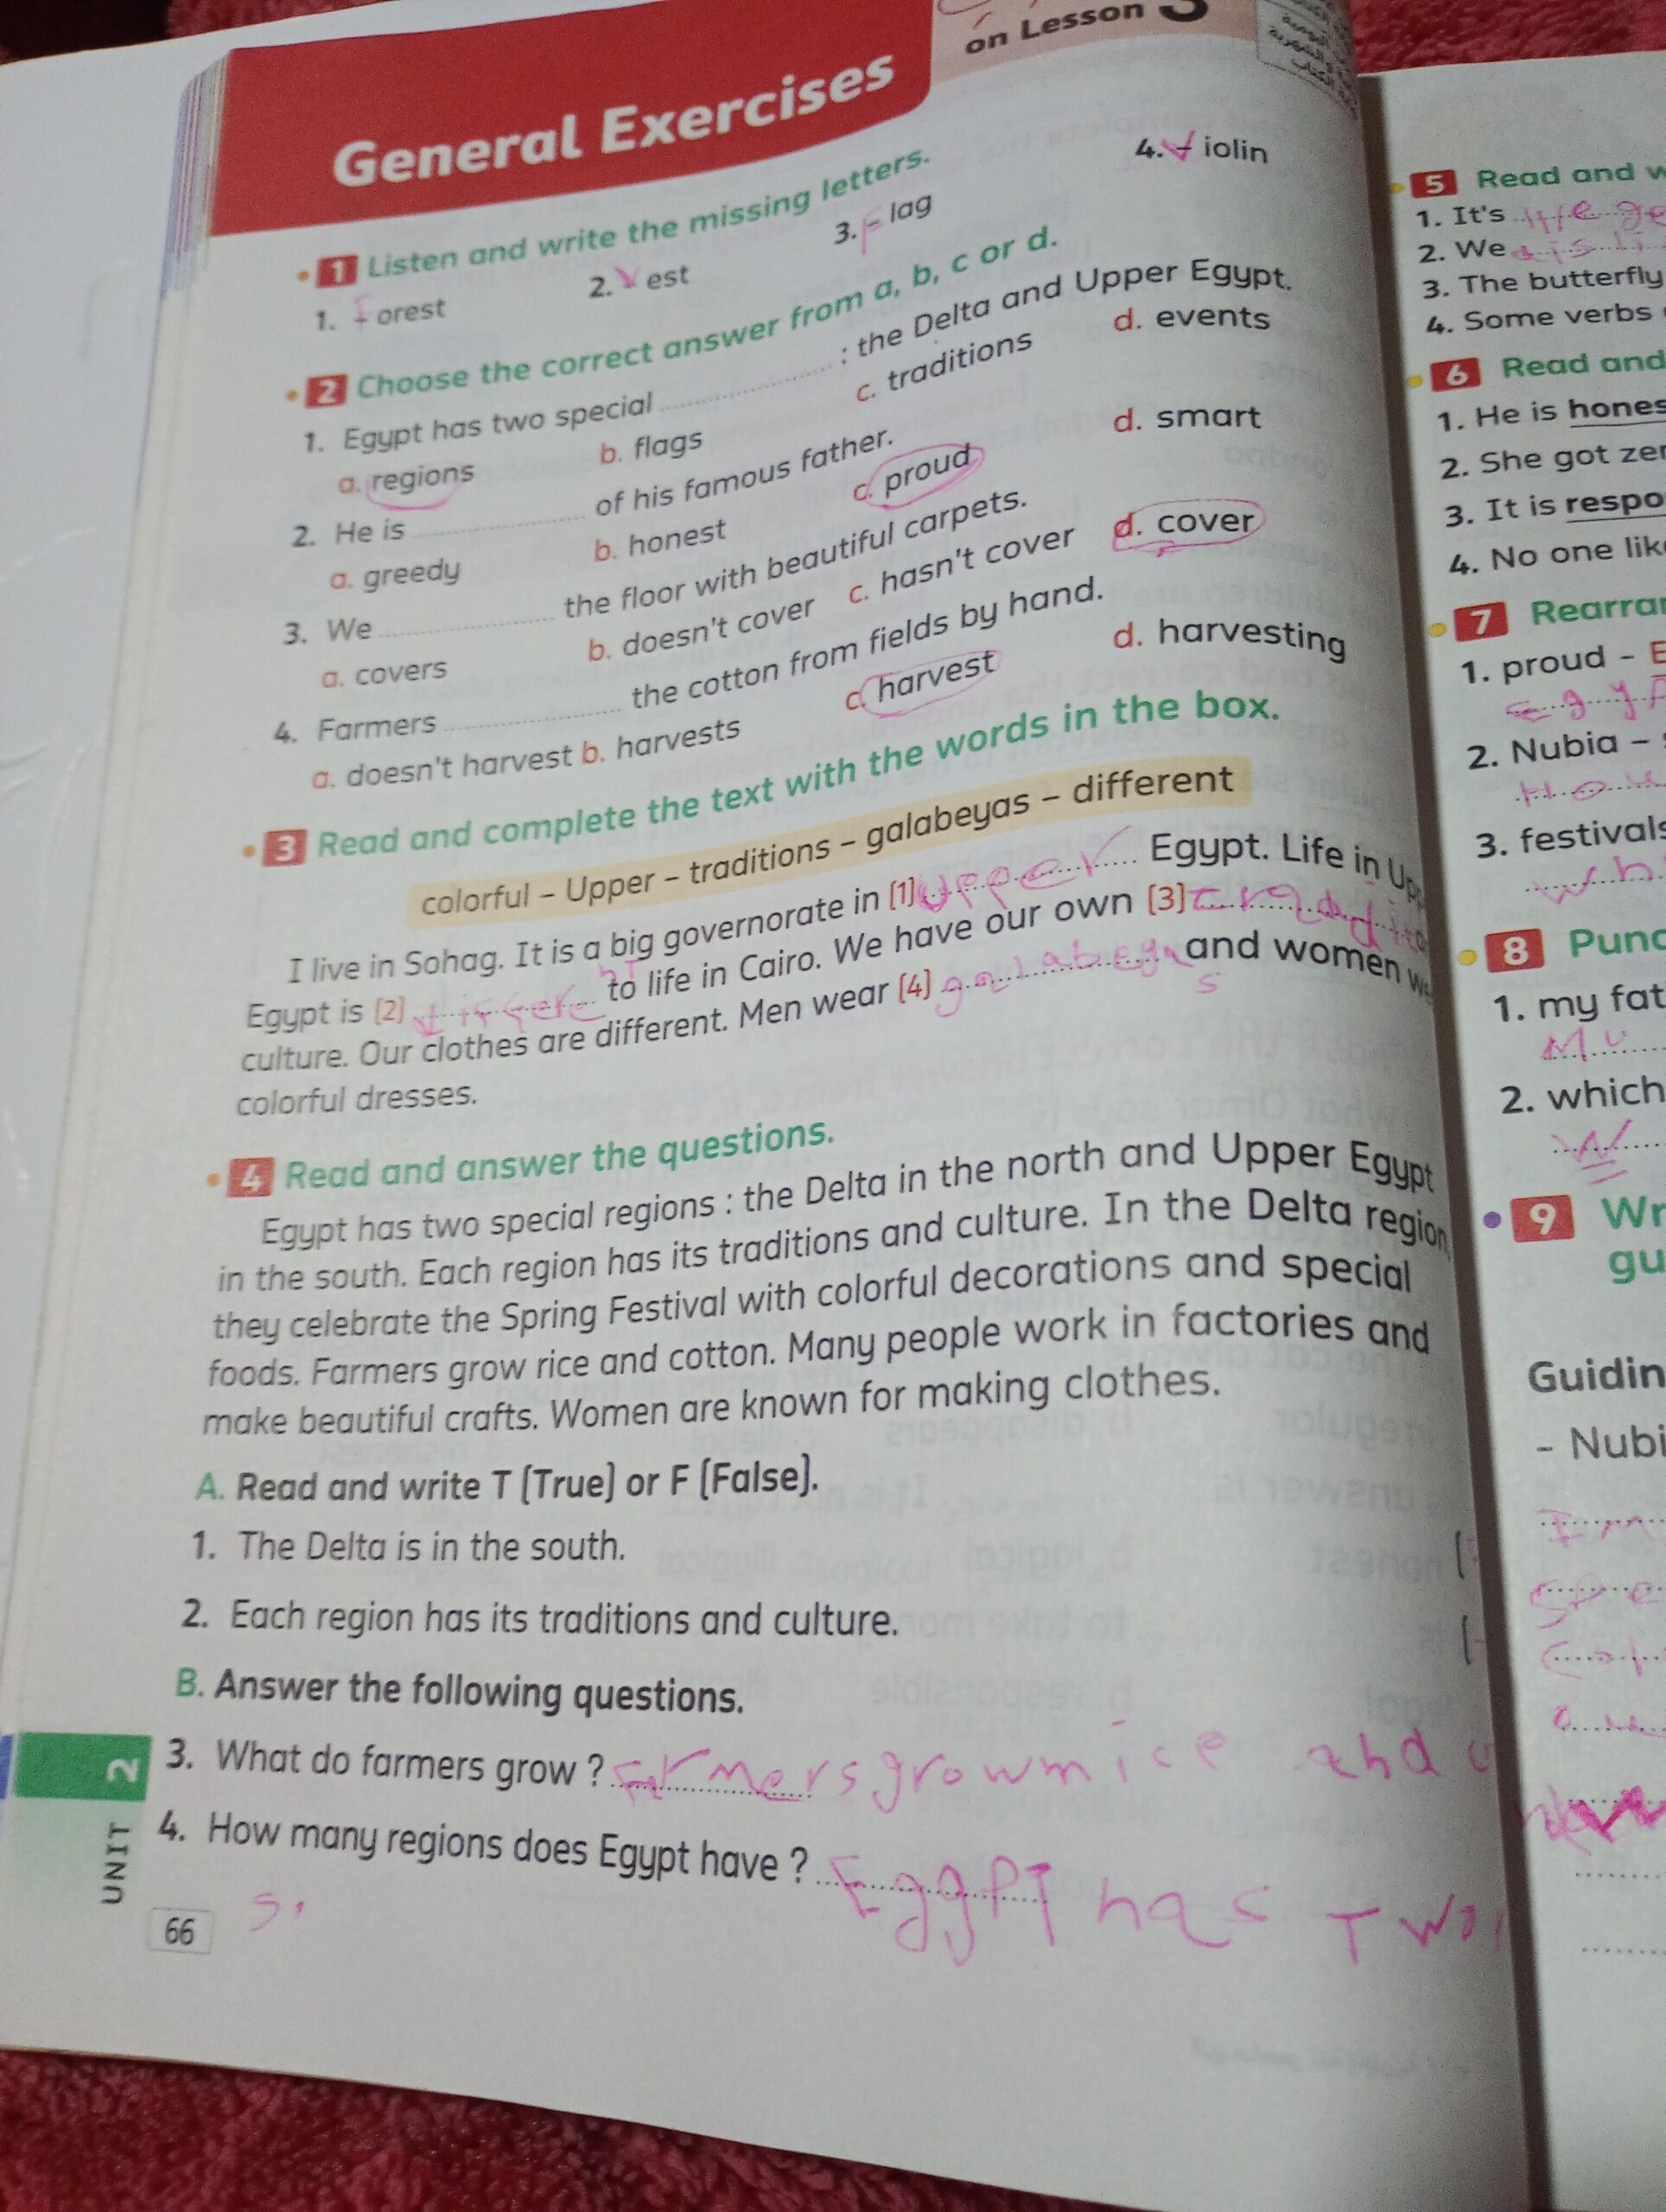 General Exercises
on Lesson
1 Listen and write the missing letters.
1. F orest 2. V est 3. F lag 4. V iolin
2 Choose the correct answer from a, b, c or d.
1. Egypt has two special : the Delta and Upper Egypt.
a. regions b. flags c. traditions d. events
2. He is of his famous father.
a. greedy b. honest c. proud d. smart
3. We the floor with beautiful carpets.
a. covers b. doesn't cover c. hasn't cover d. cover
4. Farmers the cotton from fields by hand.
a. doesn't harvest b. harvests c. harvest d. harvesting
3 Read and complete the text with the words in the box.
colorful – Upper – traditions – galabeyas – different
I live in Sohag. It is a big governorate in [1] upper Egypt. Life in
Egypt is [2] to life in Cairo. We have our own [3]
culture. Our clothes are different. Men wear [4] galabeyas and women
colorful dresses.
4 Read and answer the questions.
Egypt has two special regions : the Delta in the north and Upper Egypt
in the south. Each region has its traditions and culture. In the Delta region
they celebrate the Spring Festival with colorful decorations and special
foods. Farmers grow rice and cotton. Many people work in factories and
make beautiful crafts. Women are known for making clothes.
A. Read and write T [True] or F [False].
1. The Delta is in the south.
2. Each region has its traditions and culture.
B. Answer the following questions.
3. What do farmers grow ? and
4. How many regions does Egypt have ? has Two
UNIT 2
66
5 Read and
1. It's
2. We
3. The butterfly
4. Some verbs
6 Read and
1. He is
2. She got
3. It is
4. No one
7
1. proud –
2. Nubia –
3. festivals
8
1. my
2. which
9
–